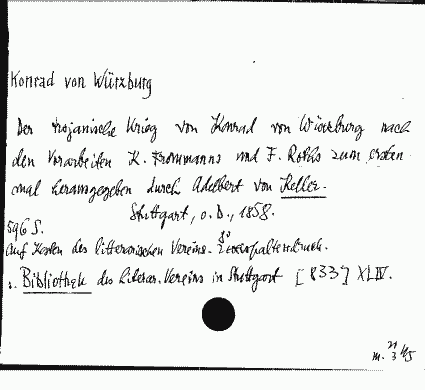 Konrad von Würzburg
Der trojanische Krieg von Konrad von Würzburg nach
den Vorarbeiten K. Frommanns und F. Roths zum ersten
mal herausgegeben durch Adelbert von Keller.
Stuttgart, o. D., 1858.
596 S.
8°
Auf Kosten des litterarischen Vereins. Zweispaltendruck.
s. Bibliothek des Literar. Vereins in Stuttgart [833] XLIV.